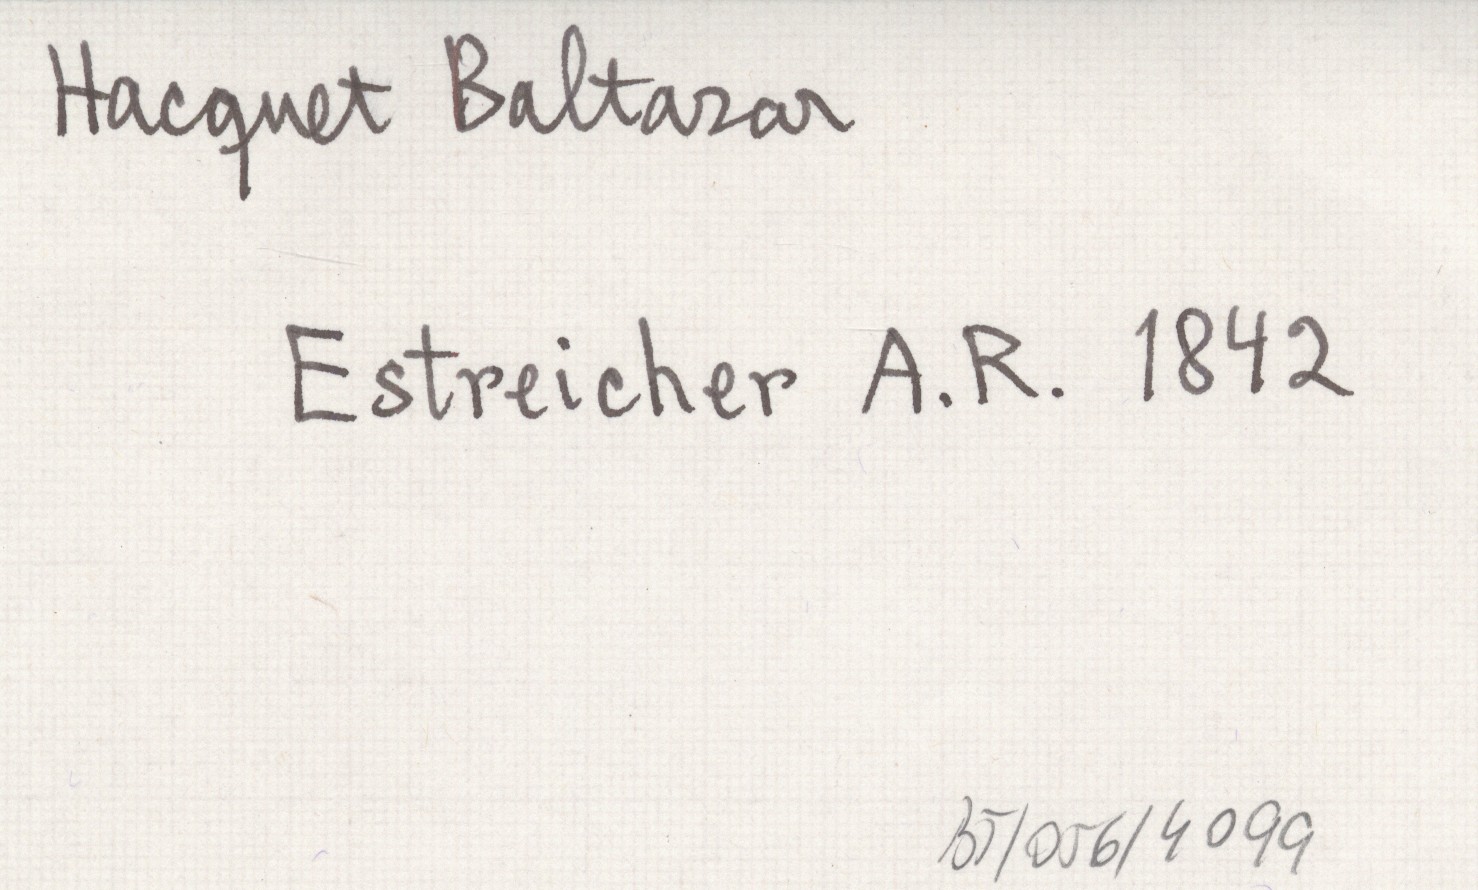 Hacquet Baltazar
Estreicher A.R. 1842
BJ/056/4099